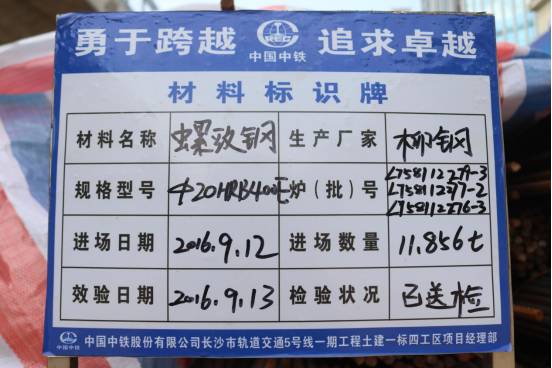 勇于跨越 追求卓越
CREC
中国中铁
材料标识牌
材料名称 螺纹钢 生产厂家 柳钢
规格型号 Φ20HRB400E 炉(批)号 L758112279-3
L758112297-2
L758112276-3
进场日期 2016.9.12 进场数量 11.856t
效验日期 2016.9.13 检验状况 已送检
中国中铁 中国中铁股份有限公司长沙市轨道交通5号线一期工程土建一标四工区项目经理部